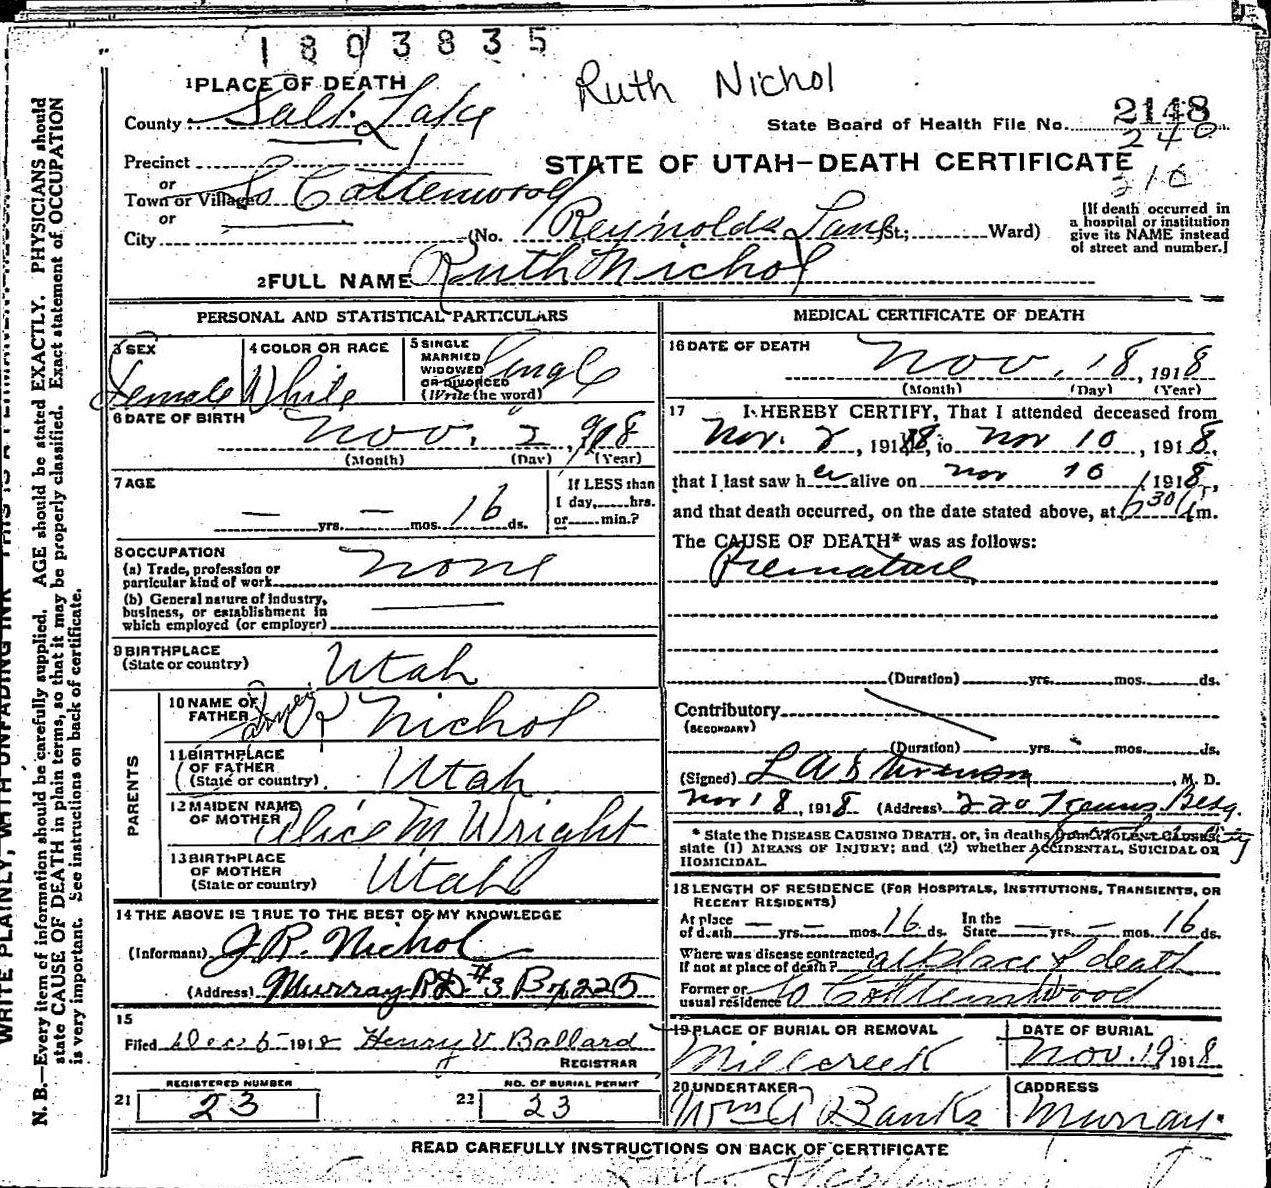 1803835
Ruth Nichol
1 PLACE OF DEATH
County Salt Lake
State Board of Health File No. 2148
240
Precinct
STATE OF UTAH—DEATH CERTIFICATE
or
Town or Village So Cottenwood
or
City (No. Reynolds Lane St.; Ward)
[If death occurred in
a hospital or institution
give its NAME instead
of street and number.]
2 FULL NAME Ruth Nichol
PERSONAL AND STATISTICAL PARTICULARS
3 SEX Female
4 COLOR OR RACE White
5 SINGLE
MARRIED
WIDOWED
OR DIVORCED
(Write the word) Single
6 DATE OF BIRTH Nov. 2, 1918
(Month) (Day) (Year)
7 AGE
— yrs. — mos. 16 ds.
If LESS than
1 day, hrs.
or min.?
8 OCCUPATION
(a) Trade, profession or
particular kind of work none
(b) General nature of industry,
business, or establishment in
which employed (or employer)
9 BIRTHPLACE
(State or country) Utah
PARENTS
10 NAME OF
FATHER James R Nichol
11 BIRTHPLACE
OF FATHER
(State or country) Utah
12 MAIDEN NAME
OF MOTHER Alice M Wright
13 BIRTHPLACE
OF MOTHER
(State or country) Utah
14 THE ABOVE IS TRUE TO THE BEST OF MY KNOWLEDGE
(Informant) J.R. Nichol
(Address) Murray RD #3 Box 225
15
Filed Dec 5 1918 Henry V Ballard
REGISTRAR
21 REGISTERED NUMBER 23
22 NO. OF BURIAL PERMIT 23
MEDICAL CERTIFICATE OF DEATH
16 DATE OF DEATH
Nov. 18, 1918
(Month) (Day) (Year)
17 I HEREBY CERTIFY, That I attended deceased from
Nov. 2, 1918, to Nov 10, 1918,
that I last saw her alive on Nov 10, 1918,
and that death occurred, on the date stated above, at 630 m.
The CAUSE OF DEATH* was as follows:
Premature
(Duration) yrs. mos. ds.
Contributory
(SECONDARY)
(Duration) yrs. mos. ds.
(Signed) L A Stevenson, M. D.
Nov 18, 1918 (Address) 220 Kearns Bldg.
* State the DISEASE CAUSING DEATH, or, in deaths from VIOLENT CAUSES,
state (1) MEANS OF INJURY; and (2) whether ACCIDENTAL, SUICIDAL OR
HOMICIDAL.
18 LENGTH OF RESIDENCE (FOR HOSPITALS, INSTITUTIONS, TRANSIENTS, OR
RECENT RESIDENTS)
At place
of death — yrs. — mos. 16 ds.
In the
State — yrs. — mos. 16 ds.
Where was disease contracted,
If not at place of death? at place of death
Former or
usual residence So Cottenwood
19 PLACE OF BURIAL OR REMOVAL
Millcreek
DATE OF BURIAL
Nov. 19 1918
20 UNDERTAKER
Wm A Banks
ADDRESS
Murray.
READ CAREFULLY INSTRUCTIONS ON BACK OF CERTIFICATE
N. B.—Every item of information should be carefully supplied. AGE should be stated EXACTLY. PHYSICIANS should
state CAUSE OF DEATH in plain terms, so that it may be properly classified. Exact statement of OCCUPATION
is very important. See instructions on back of certificate.